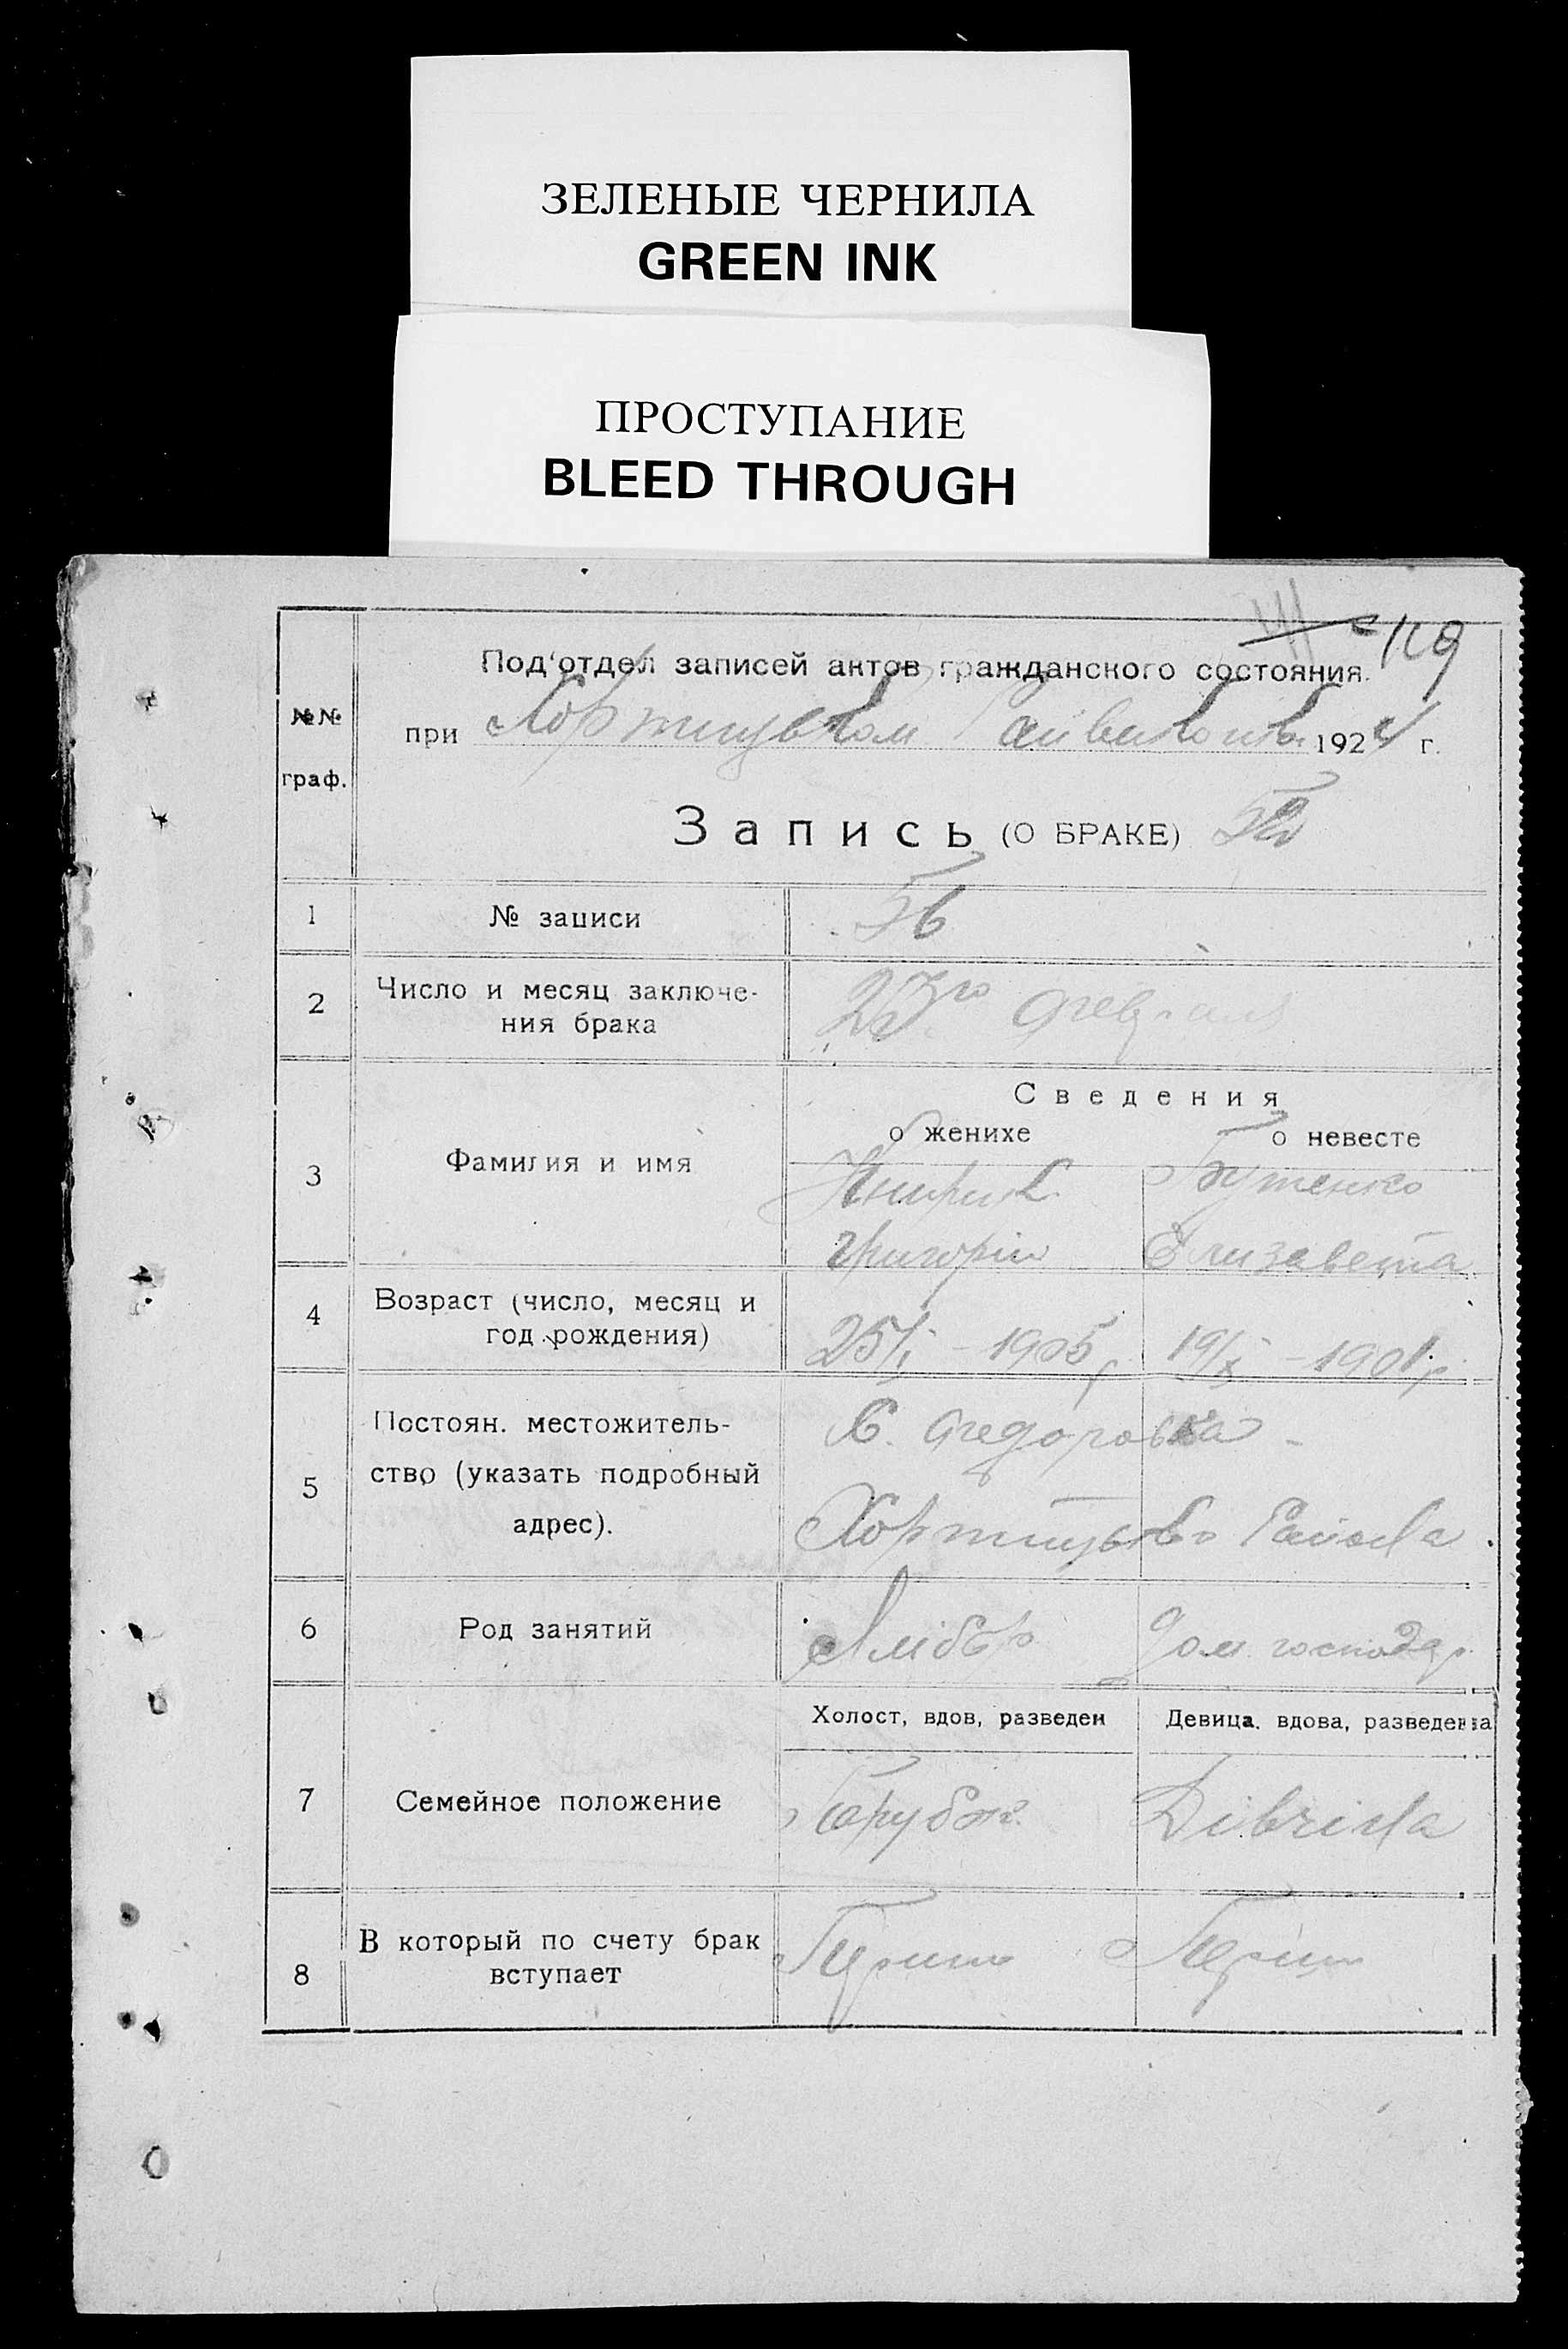 ЗЕЛЕНЫЕ ЧЕРНИЛА
GREEN INK
ПРОСТУПАНИЕ
BLEED THROUGH
119
Под'отдел записей актов гражданского состояния.
№№ граф.
при 1924 г.
Запись (О БРАКЕ)
1 № записи 56
2 Число и месяц заключе-
ния брака 23го февраля
Сведения
о женихе о невесте
3 Фамилия и имя
Григорій Елизавета
4 Возраст (число, месяц и
год рождения) 25/I - 1905 р 19/X - 1901 р.
5 Постоян. местожитель-
С. Федоровка -
ство (указать подробный
адрес).
Района
6 Род занятий Хлібор Дом. господар.
Холост, вдов, разведен Девица, вдова, разведенна
7 Семейное положение Парубок Дівчина
8 В который по счету брак
вступает